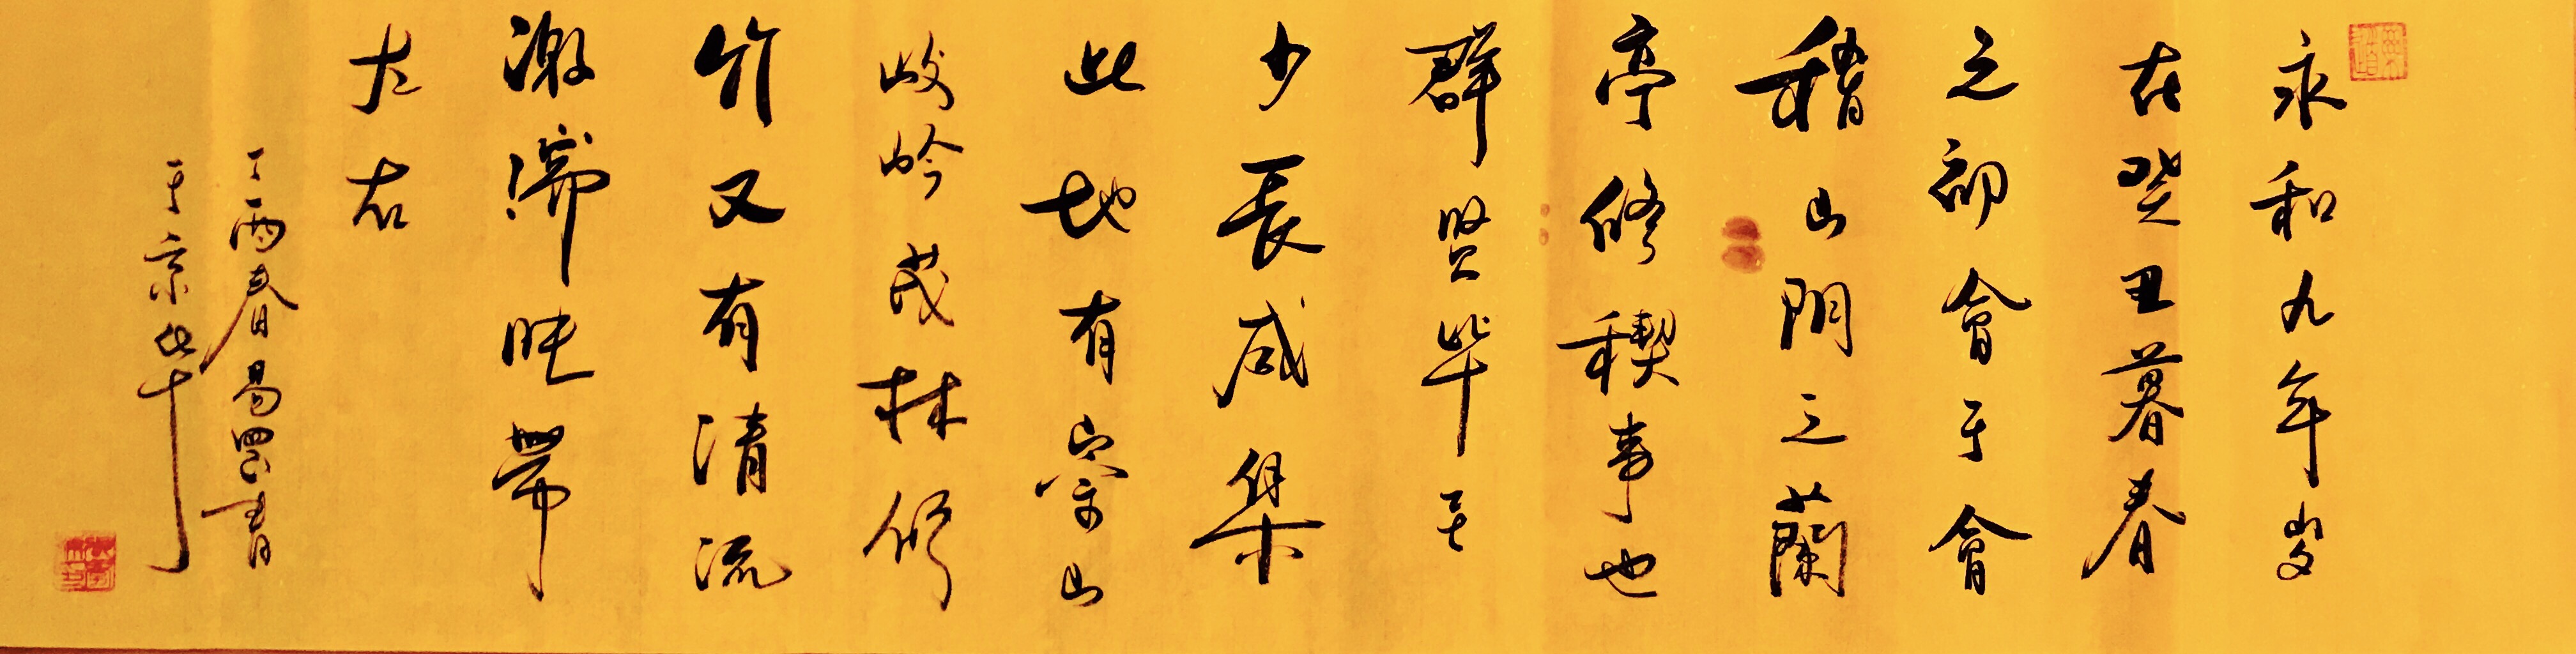 永和九年岁
在癸丑暮春
之初會于會
稽山阴之蘭
亭修禊事也
群賢毕至
少長咸集
此地有崇山
峻岭茂林修
竹又有清流
激湍映帶
左右
丁酉春易書
于京华